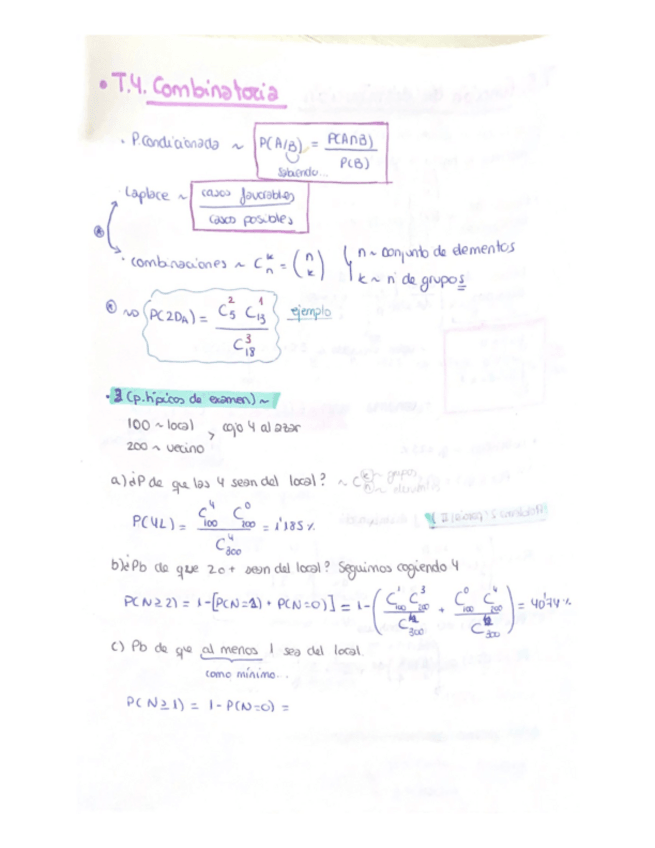 • T.4. Combinatoria
• P.Condicionada ~ P(A/B) = P(A∩B) / P(B)
sabiendo...
• Laplace ~ casos favorables / casos posibles
• combinaciones ~ C_n^k = (n k) { n ~ conjunto de elementos
k ~ nº de grupos
P(2DA) = C_5^2 C_13^1 / C_18^3 ejemplo
• 3 (p. típicos de examen) ~
100 ~ local
200 ~ vecino
, cojo 4 al azar
a) ¿P de que las 4 sean del local? ~ C (k) ~ grupos
P(4L) = C_100^4 C_200^0 / C_300^4 = 1'185 %
b) ¿Pb de que 2 o + sean del local? Seguimos cogiendo 4
P(N≥2) = 1-[P(N=1) + P(N=0)] = 1-( C_100^1 C_200^3 / C_300^4 + C_100^0 C_200^4 / C_300^4 ) = 40'74 %
c) Pb de que al menos 1 sea del local.
como mínimo...
P(N≥1) = 1-P(N=0) =